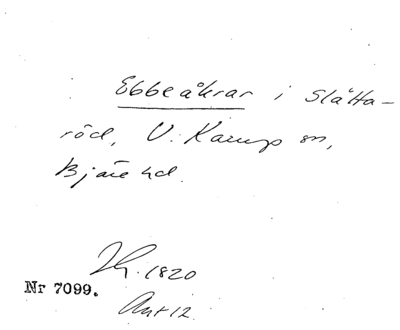 Ebbeåkrar i Slätta-
röd, V. Karup sn,
Bjäre hd.
1820
Nr 7099.
Ant 12.